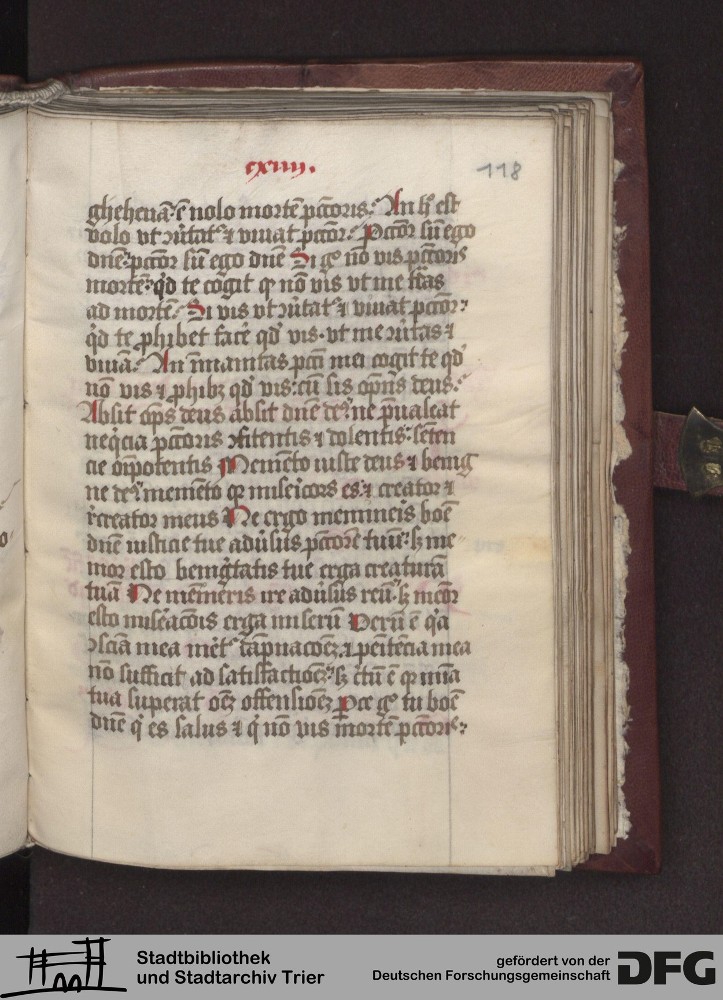 cxiiij.
118
ghehenna: e nolo mortē pctoris: An h est
volo vt ꝯūtat᷑ ⁊ viuat pctor: Pctor sū ego
dnē: pctor sū ego dnē Si gͦ nō vis pctoris
mortē: qd te cogit qͥ nō vis vt me tdas
ad mortē: Si vis vt ꝯūtat᷑ ⁊ viuat pctor:
qd te ꝓhibet facē qd vis. vt me ꝯūtas ⁊
viuā: An īmanitas pcti mei cogit te qd
nō vis ⁊ ꝓhibꝫ qd vis: cū sis opīs deus:
Absit ops deus absit dnē deꝰ ne p̄ualeat
neqͥcia pctoris ꝯfitentis ⁊ dolentis: senten
cie oīpotentis Memēto iuste deus ⁊ benig
ne deꝰ memēto qꝫ misericors es: ⁊ creator ⁊
r̄creator meus Ne ergo memineris boē
dnē iusticie tue aduͥsus pctorē tuū: sꝫ me
mor esto benigͥtatis tue erga creaturā
tuā Ne memīeris ire aduͥsus reū: sꝫ memor
esto miseracōis erga miserū Verū ē qͥa
ꝯsciā mea meret᷑ dāpnacoēꝫ ⁊ penitēcia mea
nō sufficit ad satisfactioēꝫ: sꝫ c̄tū ē qꝫ mīa
tua superat oēꝫ offensioēꝫ Pce gͦ tu boē
dnē qͥ es salus ⁊ qͥ nō vis mortē pctoris:
Stadtbibliothek
und Stadtarchiv Trier
gefördert von der
Deutschen Forschungsgemeinschaft
DFG